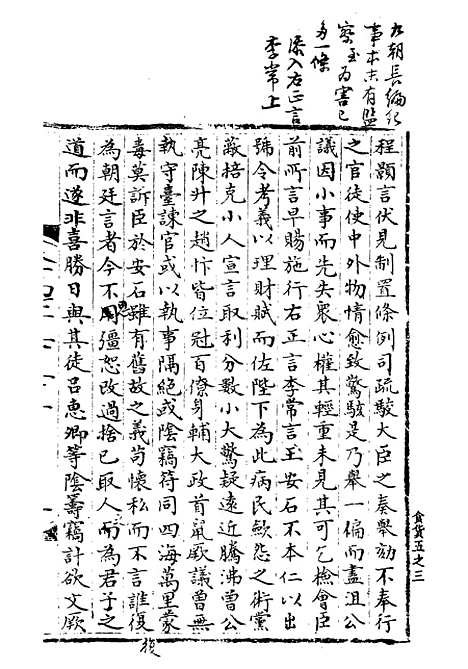 九朝長編紀
事本末有監
察至為害已
多一條
添入右正言
李常上
程顥言伏見制置條例司疏駮大臣之奏舉劾不奉行
之官徒使中外物情愈致驚駭是乃舉一偏而盡沮公
議因小事而先失衆心權其輕重未見其可乞檢會臣
前所言早賜施行右正言李常言王安石不本仁以出
號令考義以理財賦而佐陛下為此病民歛怨之術黨
蔽掊克小人宣言取利分數小大驚疑遠近騰沸曾公
亮陳升之趙忭皆位冠百僚身輔大政首鼠厥議曾無
執守臺諫官或以執事隔絶或陰竊符同四海萬里蒙
毒莫訴臣於安石雖有舊故之義苟懷私而不言誰復
為朝廷言者今不彊恕改過捨已取人而為君子之
道而遂非喜勝日與其徒呂惠卿等陰籌竊計欲文厥
食貨五之三